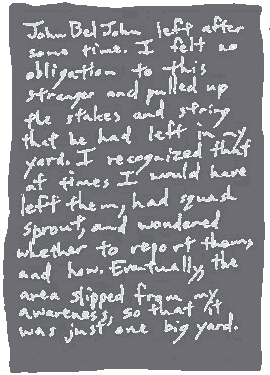 John Bel John left after
some time. I felt no
obligation to this
stranger and pulled up
the stakes and string
that he had left in my
yard. I recognized that
at times I would have
left them, had squash
sprout, and wondered
whether to report them,
and how. Eventually, the
area slipped from my
awareness, so that it
was just one big yard.